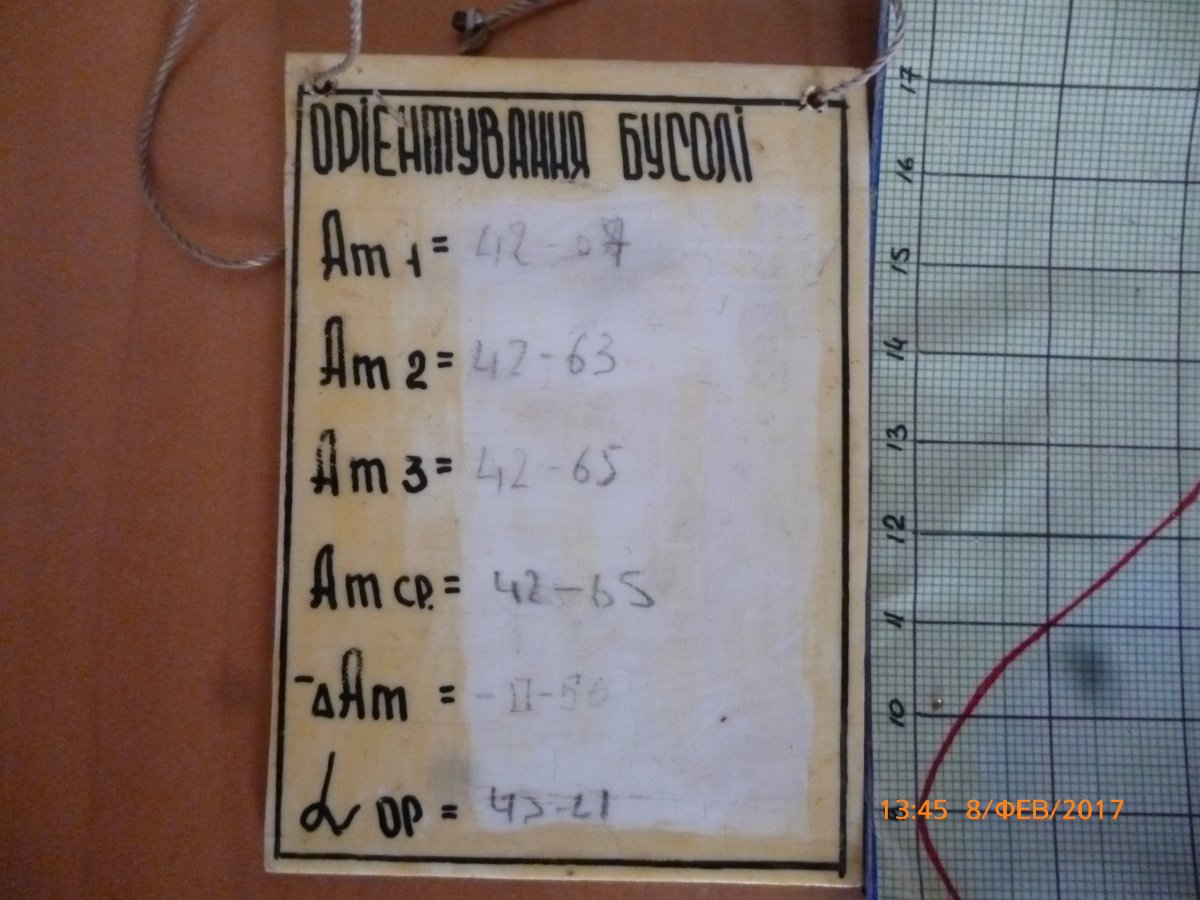 ОРІЄНТУВАННЯ БУСОЛІ
Am 1 = 42-
Am 2 = 42-63
Am 3 = 42-65
Am СР. = 42-65
-ΔAm =
α ОР =
17
16
15
14
13
12
11
10
9
13:45 8/ФЕВ/2017